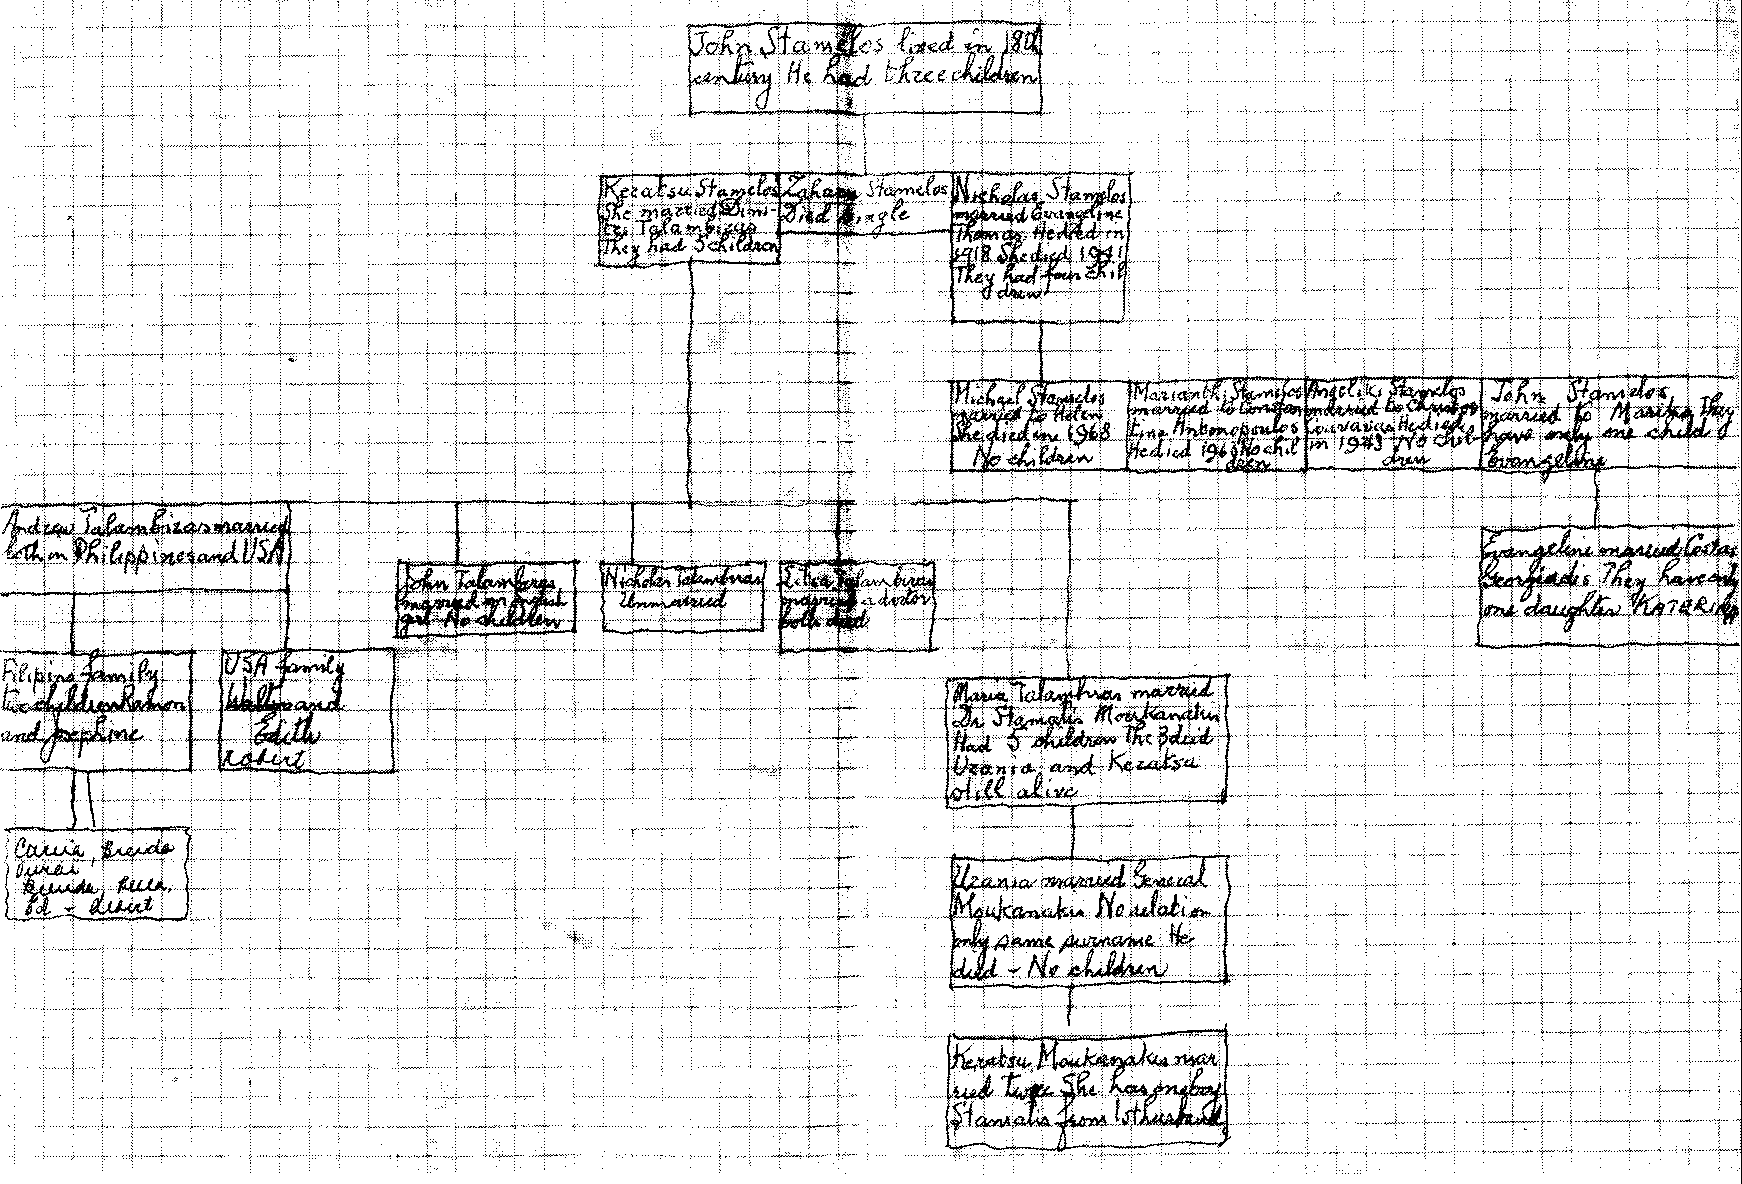 John Stamelos lived in 18th
century He had three children
Keratsu Stamelos
She married Dimi-
tri Talambiras
They had 5 children
Zahary Stamelos
Died single
Nicholas Stamelos
married Evangeline
Thomas He died in
1918 She died 1941
They had four chil
dren
Michael Stamelos
married to Helen
She died in 1968
No children
Marianthi Stamelos
married to Constan
tine Antonopoulos
He died 196 No chil
dren
Angeliki Stamelos
married to Christos
Couvaras He died
in 1943 No chil-
dren
John Stamelos
married to Marika They
have only one child
Evangeline
Andrew Talambiras married
both in Philippines and USA
John Talambiras
married an English
girl No children
Nicholas Talambiras
Unmarried
Talambiras
married a doctor
both died
Evangeline married Costas
Georgiadis They have only
one daughter KATERINA
Filipino family
Two children Ramon
and Josephine
USA family
and
Edith
Robert
Maria Talambiras married
Dr Stamatis Moukanakis
Had 5 children The 3 died
Urania and Keratsu
still alive
Urania married General
Moukanakis No relation
only same surname He
died - No children
Keratsu Moukanakis mar
ried twice She has one boy
Stamatis from 1st husband